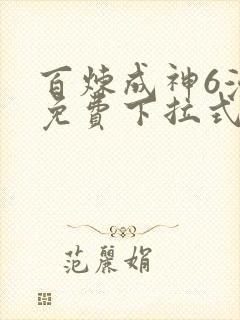 百炼成神6漫
免費下拉式
范麗娟